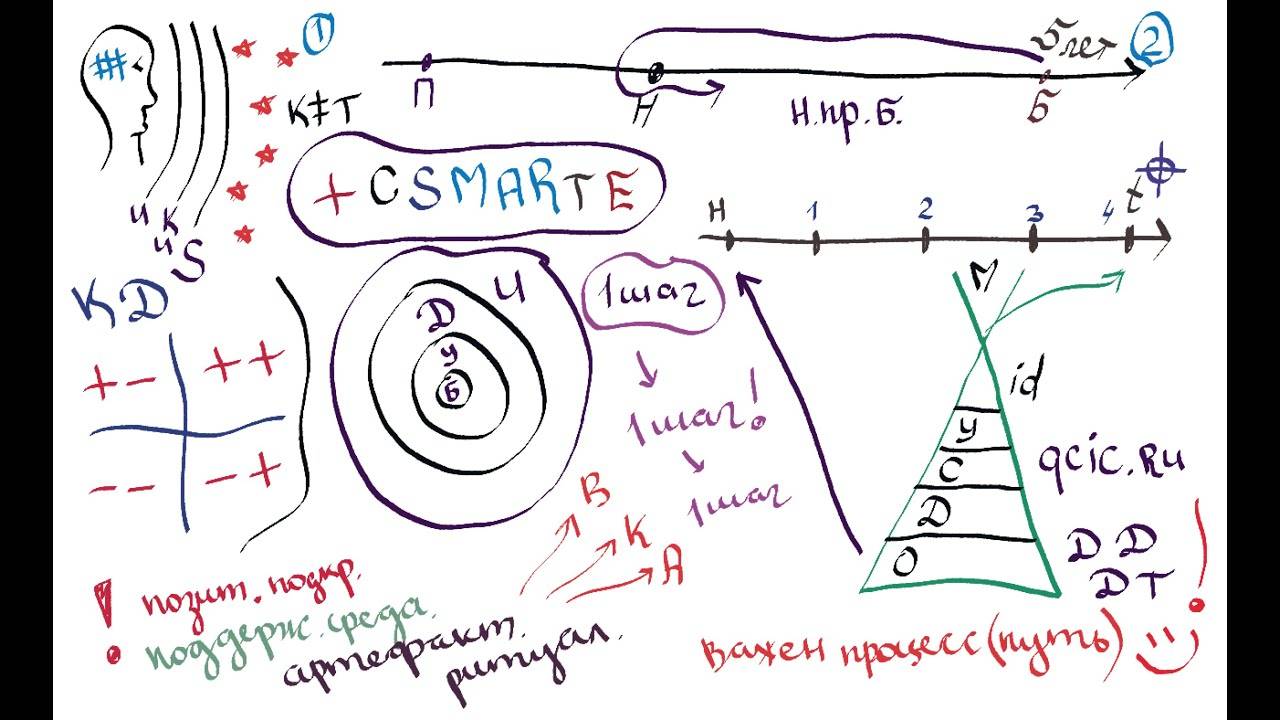 1
К≠Т
ч
к
ч
S
П
Н
5 лет
Б
2
Н.пр.Б.
+ С SMARTE
Н 1 2 3 4 t
КД
+ -
+ +
- -
- +
Ч
Д
У
Б
1 шаг
1 шаг!
1 шаг
М
id
У
С
Д
О
qcic.Ru
ДД
ДТ
!
В
К
А
! позит. подкр.
поддерж. среда.
артефакт.
ритуал.
важен процесс (путь)